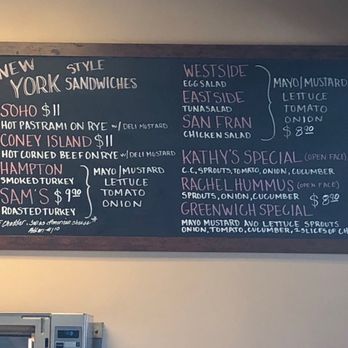 NEW YORK STYLE SANDWICHES
SOHO $11
HOT PASTRAMI ON RYE w/ DELI MUSTARD
CONEY ISLAND $11
HOT CORNED BEEF ON RYE w/ DELI MUSTARD
HAMPTON
SMOKED TURKEY
SAM'S $9.90
ROASTED TURKEY
MAYO/MUSTARD
LETTUCE
TOMATO
ONION
Cheddar, Swiss American cheese
WESTSIDE
EGG SALAD
EASTSIDE
TUNA SALAD
SAN FRAN
CHICKEN SALAD
MAYO/MUSTARD
LETTUCE
TOMATO
ONION
$8.90
KATHY'S SPECIAL (OPEN FACE)
C.C, SPROUTS, TOMATO, ONION, CUCUMBER
RACHEL HUMMUS (OPEN FACE)
SPROUTS, ONION, CUCUMBER
$8.90
GREENWICH SPECIAL
MAYO MUSTARD AVO LETTUCE SPROUTS
ONION, TOMATO, CUCUMBER, 2 SLICES OF CH